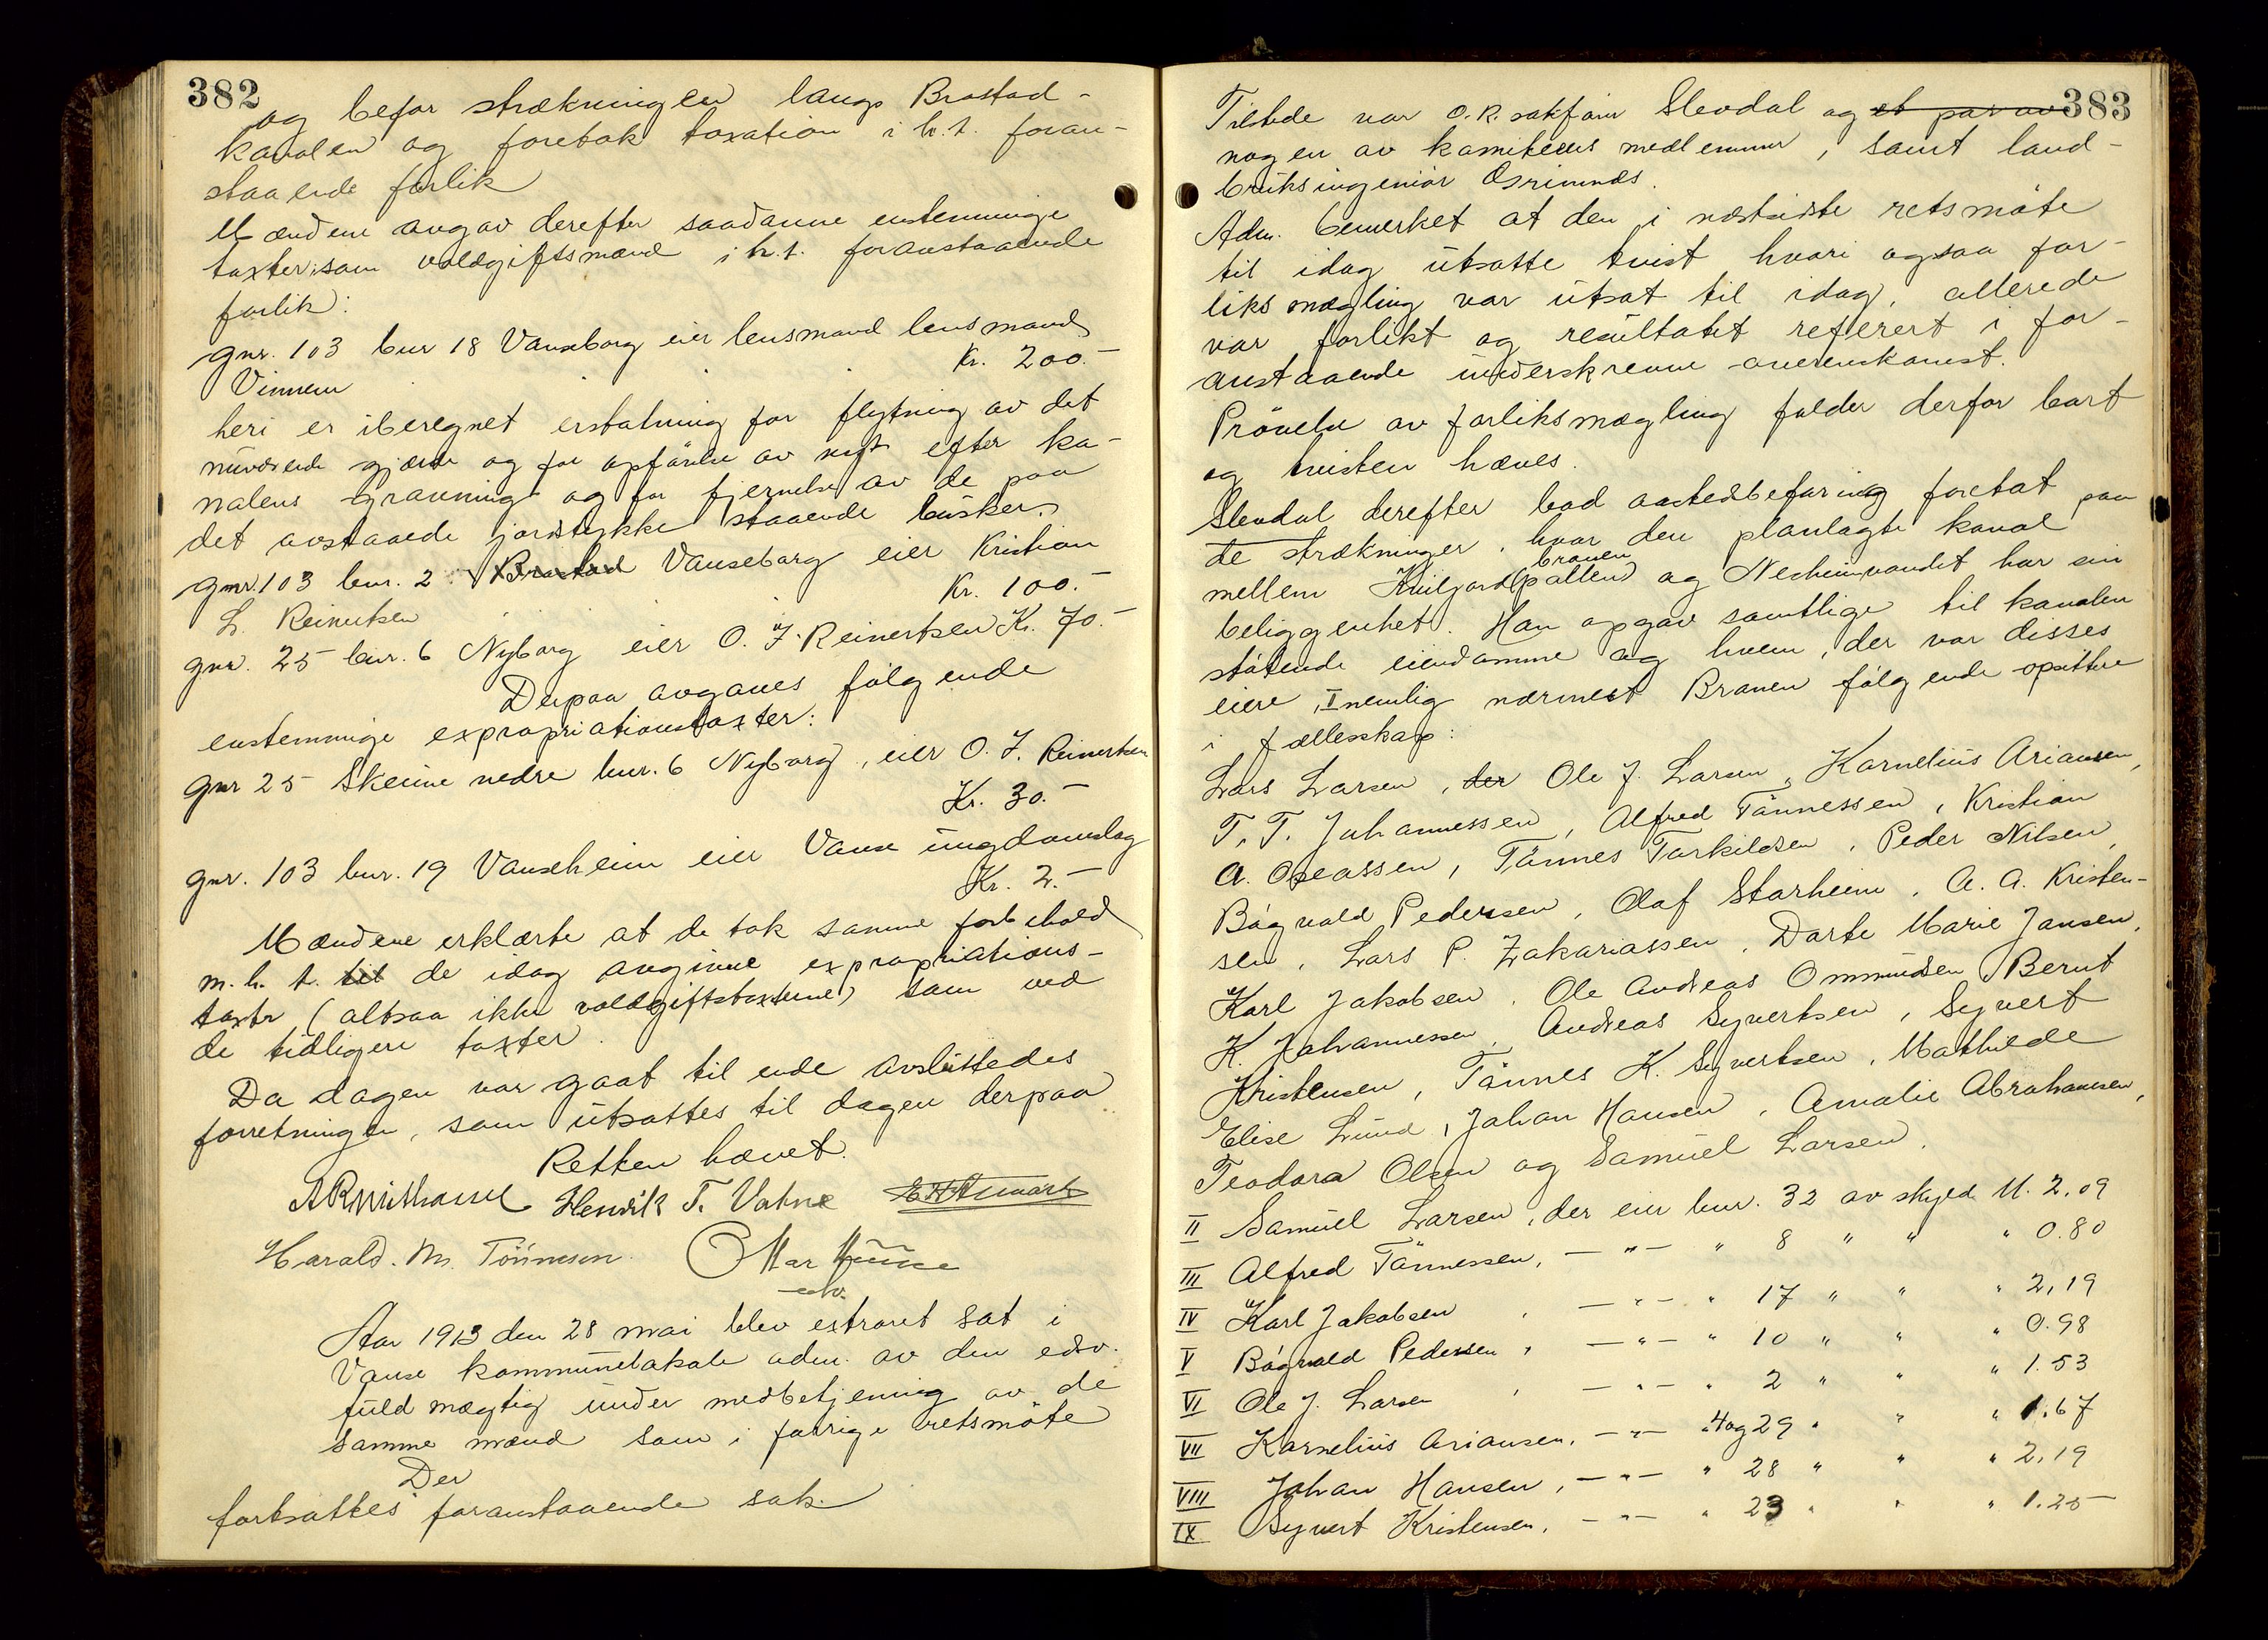 382
og befor strækningen langs Brastad-
kanalen og foretok taxation i h.t. foran-
staaende forlik
Mændene avgav derefter saadanne enstemmige
taxter som voldgiftsmænd i h.t. foranstaaende
forlik:
gnr. 103 bnr 18 Vanseborg eier lensmand lensmand
Vinnem Kr. 200.-
heri er iberegnet erstatning for flytning av det
nuværende gjærde og for opførelse av nyt efter ka-
nalens gravning og for fjernelse av de paa
det avstaaede jordstykke staaende busker.
gnr. 103 bnr. 2 Brastad Vanseborg eier Kristian
L. Reinertsen Kr. 100.-
gnr. 25 bnr. 6 Nyborg eier O. F. Reinertsen Kr. 70.-
Derpaa avgaves følgende
enstemmige expropriationstaxter:
gnr 25 Skeime nedre bnr. 6 Nyborg, eier O. F. Reinertsen
Kr. 30.-
gnr. 103 bnr. 19 Vanseheim eier Vanse ungdomslag
Kr. 2.-
Mændene erklærte at de tok samme forbehold
m.h.t. til de idag avgivne expropriations-
taxter (altsaa ikke voldgiftstaxterne) som ved
de tidligere taxter.
Da dagen var gaat til ende avsluttedes
forretningen, som utsattes til dagen derpaa
Retten hævet.
Henrik T. Vatne
Harald. M. Tönnesen Ottar
edv.
Aar 1913 den 28 mai blev extraret sat i
Vanse kommunelokale adm. av den edsv.
fuldmægtig under medbetjening av de
samme mænd som i forrige retsmøte
Der
fortsattes foranstaaende sak.
383
Tilstede var o.r.sakfører Slevdal og et par av
nogen av komiteens medlemmer, samt land-
bruksingeniør Grimnes.
Adm. bemerket at den i næstsidste retsmøte
til idag utsatte tvist hvori ogsaa for-
liksmægling var utsat til idag, allerede
var forlikt og resultatet referert i for-
anstaaende underskrevne overenskomst.
Prøvelse av forliksmægling falder derfor bort
og tvisten hæves.
Slevdal derefter bad aastedbefaring foretat paa
de strækninger, hvor den planlagte kanal
brauen
mellem (pollen) og Nesheimvandet har sin
beliggenhet. Han opgav samtlige til kanalen
støtende eiendomme og hvem, der var disses
eiere, I nemlig nærmest Braven følgende opsittere
i fællesskap:
Lars Larsen, der Ole J. Larsen, Kornelius Ariansen,
T. T. Johannessen, Alfred Tønnessen, Kristian
A. Oseassen, Tønnes Torkildsen, Peder Nilsen,
Bøgvald Pedersen, Olaf Storheim, A. A. Kristen-
sen, Lars P. Zakariassen, Dorte Marie Jansen,
Karl Jakobsen, Ole Andreas Ommundsen, Bernt
K. Johannessen, Andreas Syvertsen, Syvert
Kristensen, Tønnes K. Syvertsen, Mathilde
Elise Lund, Johan Hansen, Amalie Abrahamsen,
Teodora Olsen og Samuel Larsen.
II Samuel Larsen, der eier bnr. 32 av skyld M. 2,09
III Alfred Tønnessen, — " — " 8 " " " 0.80
IV Karl Jakobsen, — " — " 17 " " " 2,19
V Bøgvald Pedersen, — " — " 10 " " " 0.98
VI Ole J. Larsen, — " — " 2 " " " 1.53
VII Kornelius Ariansen, — " — " 4 og 29 " " " 1.67
VIII Johan Hansen, — " — " 28 " " " 2,19
IX Syvert Kristensen, — " — " 23 " " " 1.25